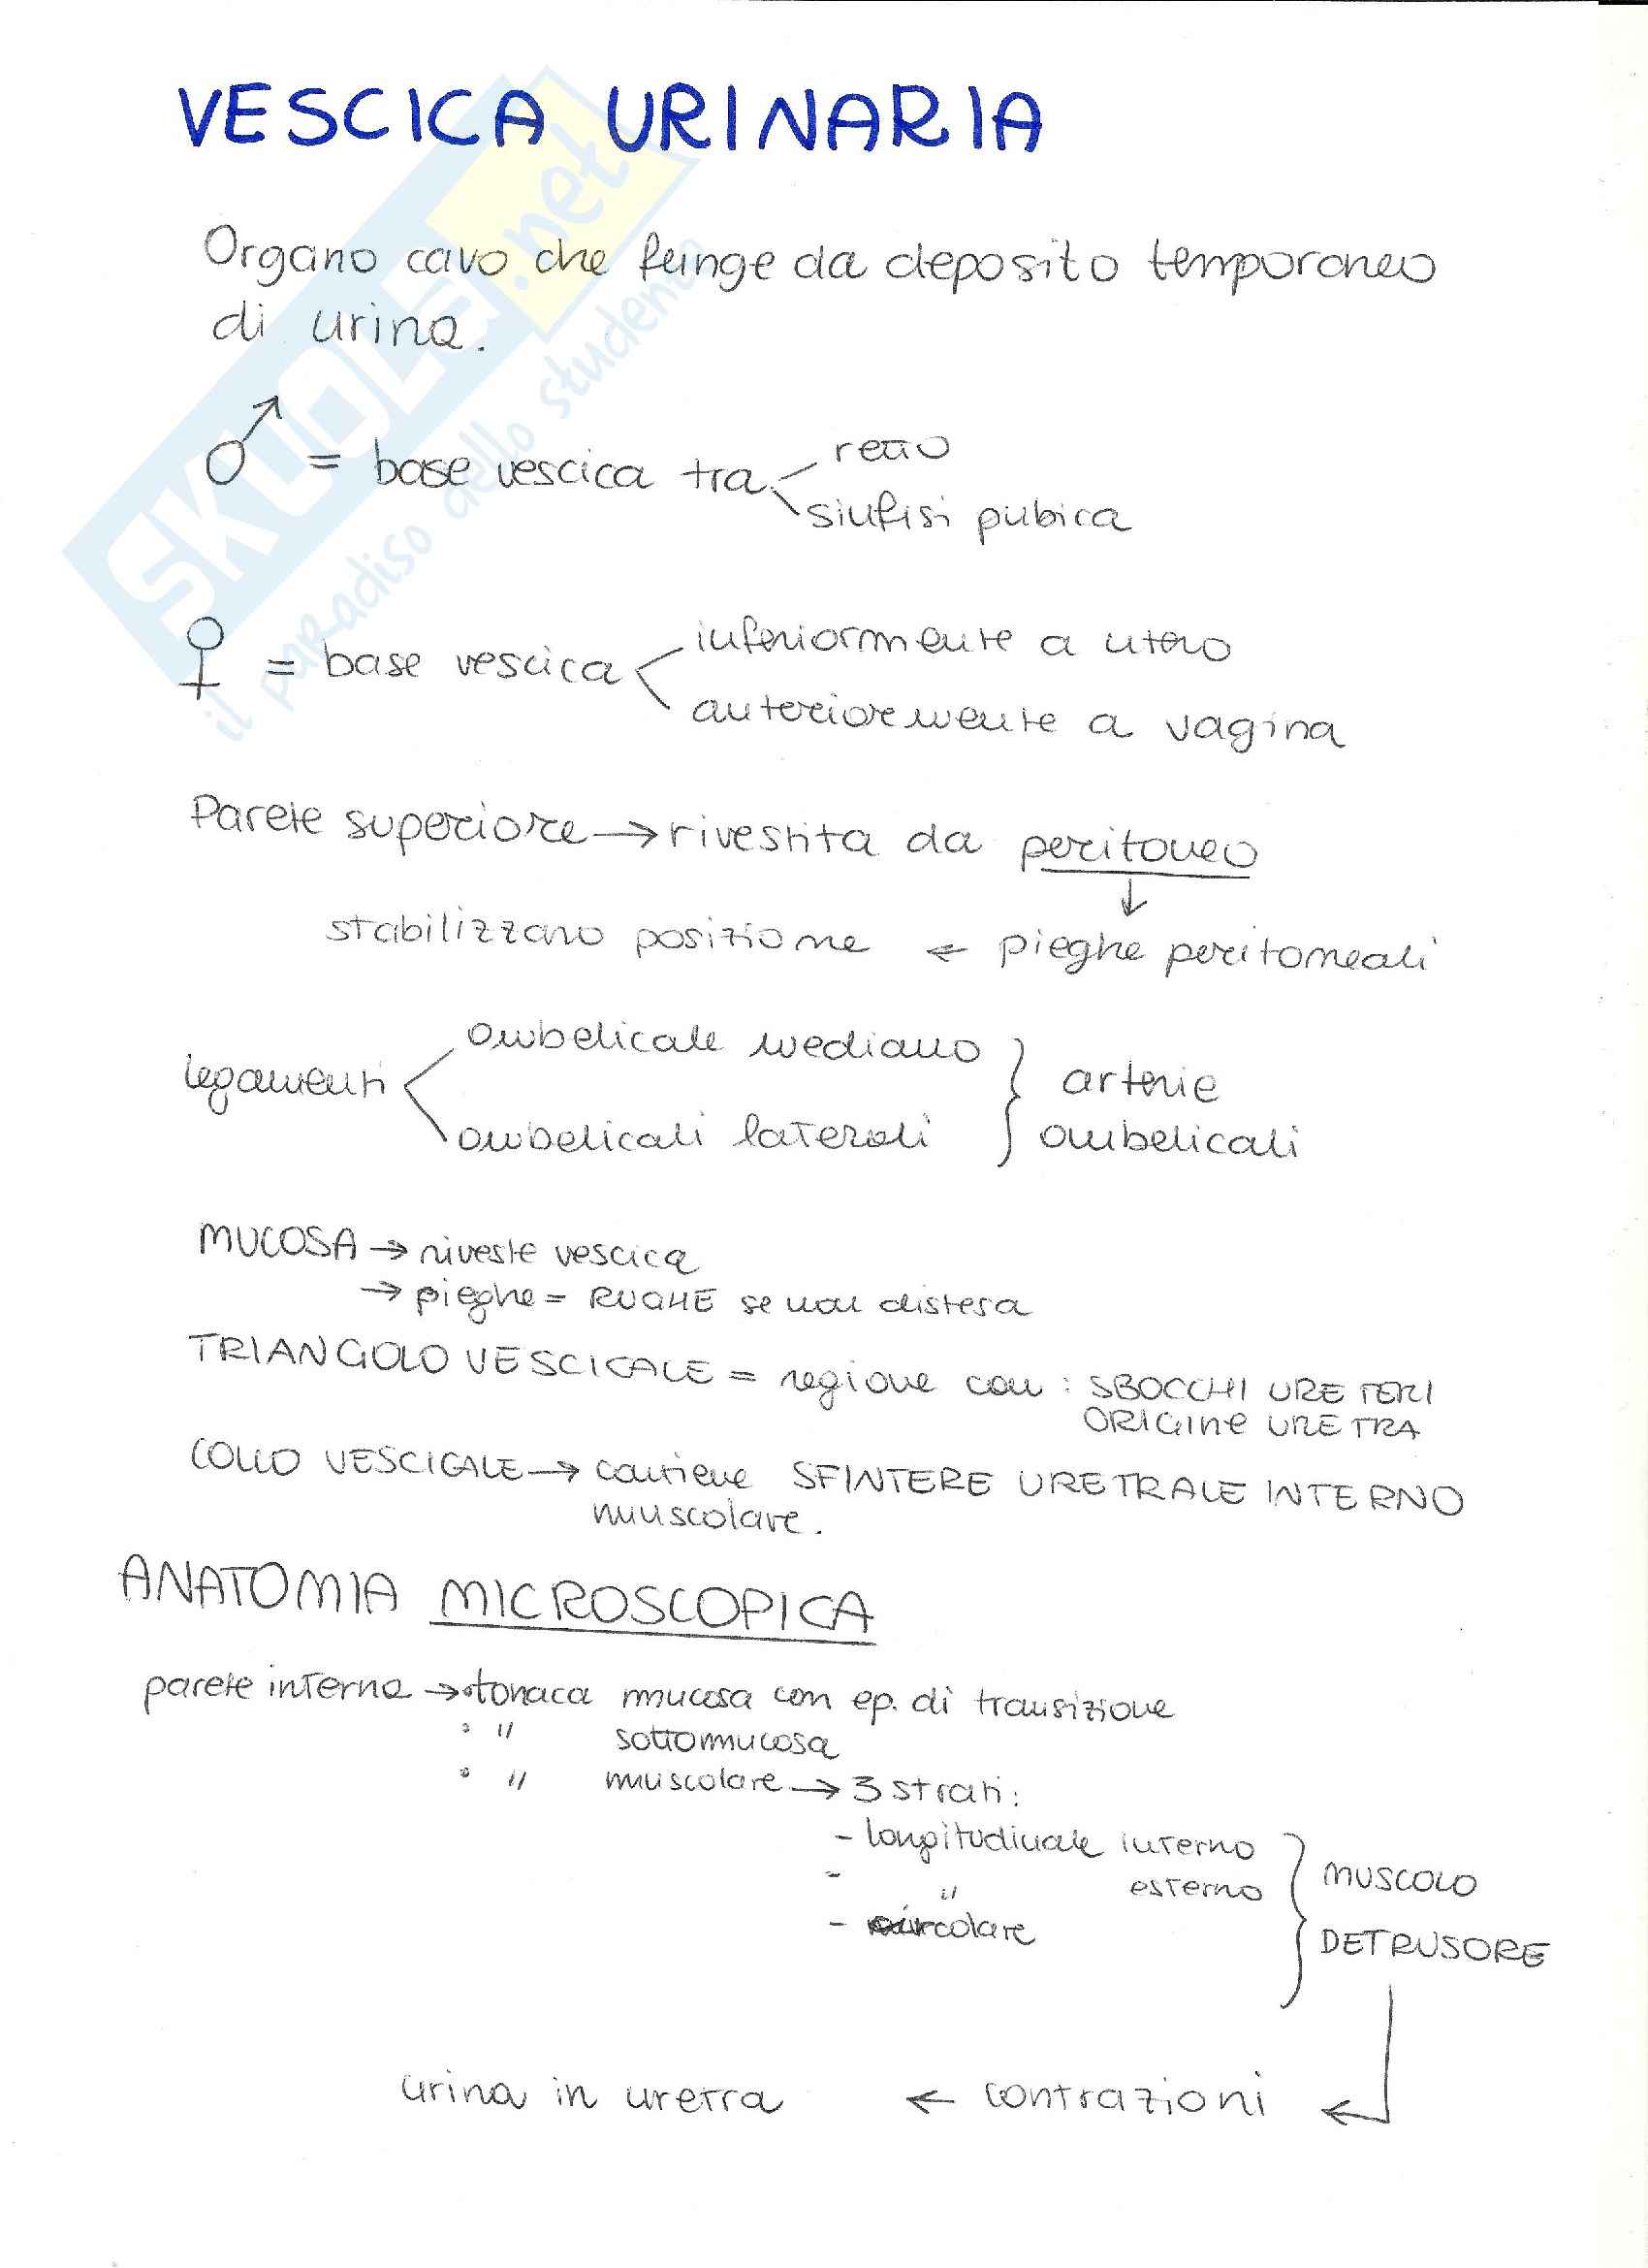 VESCICA URINARIA
Organo cavo che funge da deposito temporaneo
di urina.
♂ = base vescica tra retto
sinfisi pubica
♀ = base vescica inferiormente a utero
anteriormente a vagina
Parete superiore → rivestita da peritoneo
↓
stabilizzano posizione ← pieghe peritoneali
legamenti
ombelicale mediano
ombelicali laterali
} arterie
ombelicali
MUCOSA → riveste vescica
→ pieghe = RUGHE se non distesa
TRIANGOLO VESCICALE = regione con : SBOCCHI URETERI
ORIGINE URETRA
COLLO VESCICALE → contiene SFINTERE URETRALE INTERNO
muscolare.
ANATOMIA MICROSCOPICA
parete interna → • tonaca mucosa con ep. di transizione
• " sottomucosa
• " muscolare → 3 strati:
- longitudinale interno
- " esterno
- circolare
} MUSCOLO
DETRUSORE
urina in uretra ← contrazioni ←
SKUOLA.net
il paradiso dello studente